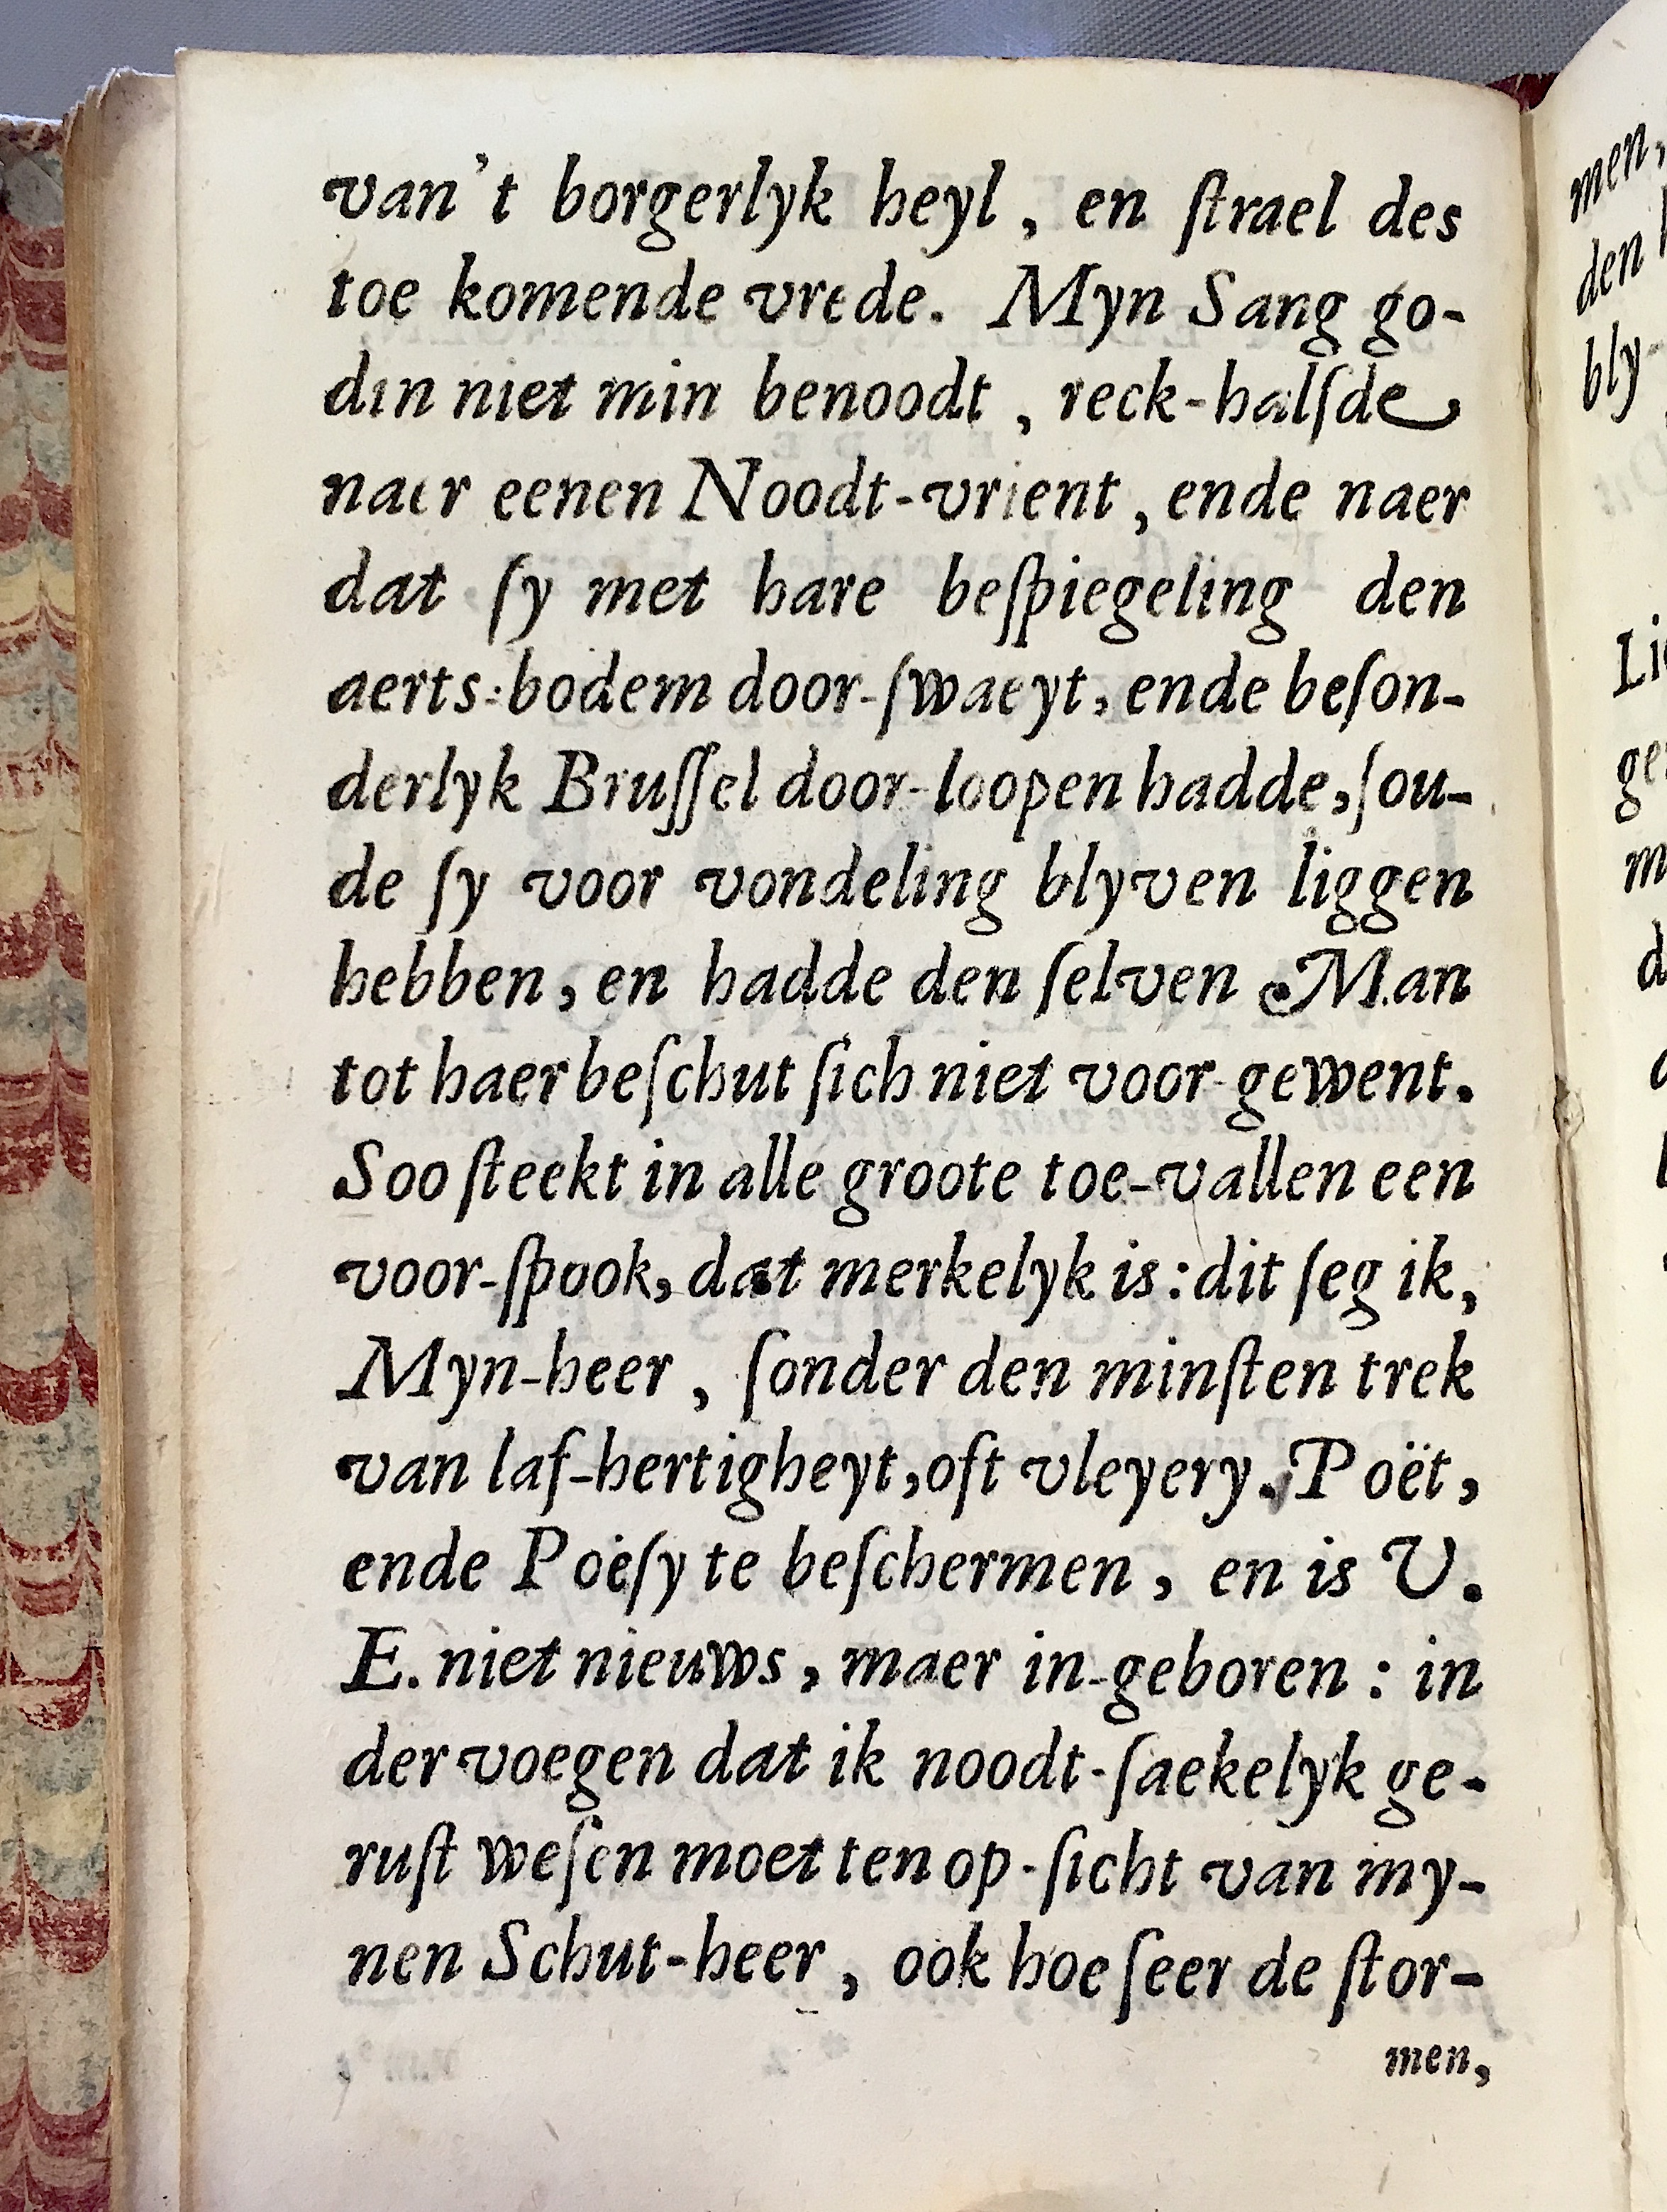 van't borgerlyk heyl, en ſtrael des
toe komende vrede. Myn Sang go-
din niet min benoodt, reck-halſde
naer eenen Noodt-vrient, ende naer
dat ſy met hare beſpiegeling den
aerts-bodem door-ſwaeyt, ende beſon-
derlyk Bruſſel door-loopen hadde, ſou-
de ſy voor vondeling blyven liggen
hebben, en hadde den ſelven Man
tot haer beſchut ſich niet voor-gewent.
Soo ſteekt in alle groote toe-vallen een
voor-ſpook, dat merkelyk is: dit ſeg ik,
Myn-heer, ſonder den minſten trek
van laf-hertigheyt, oft vleyery. Poët,
ende Poëſy te beſchermen, en is U.
E. niet nieuws, maer in-geboren: in
der voegen dat ik noodt-ſaekelyk ge-
ruſt weſen moet ten op-ſicht van my-
nen Schut-heer, ook hoe ſeer de ſtor-
men,
men,
den
bly-